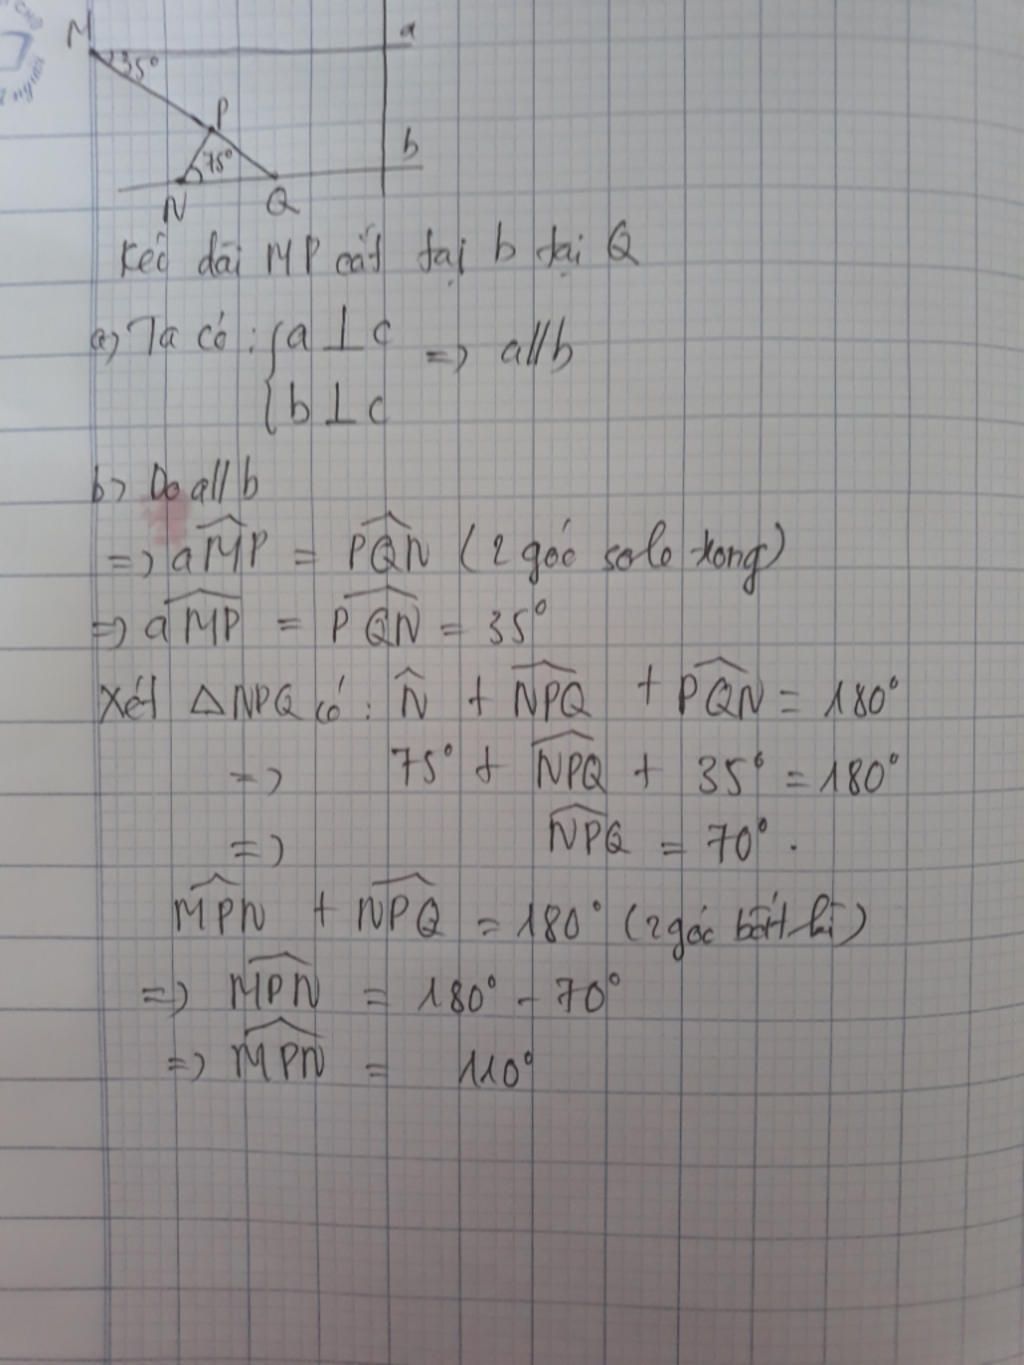 M
a
35°
P
b
75°
N Q
Kéo dài MP cắt tại b tại Q
a) Ta có: { a ⊥ c
{ b ⊥ c => a//b
b) Do a//b
=> aMP̂ = PQN̂ (2 góc sole trong)
=> aMP̂ = PQN̂ = 35°
Xét △NPQ có: N̂ + NPQ̂ + PQN̂ = 180°
=> 75° + NPQ̂ + 35° = 180°
=> NPQ̂ = 70°.
MPN̂ + NPQ̂ = 180° (2 góc
=> MPN̂ = 180° - 70°
=> MPN̂ = 110°